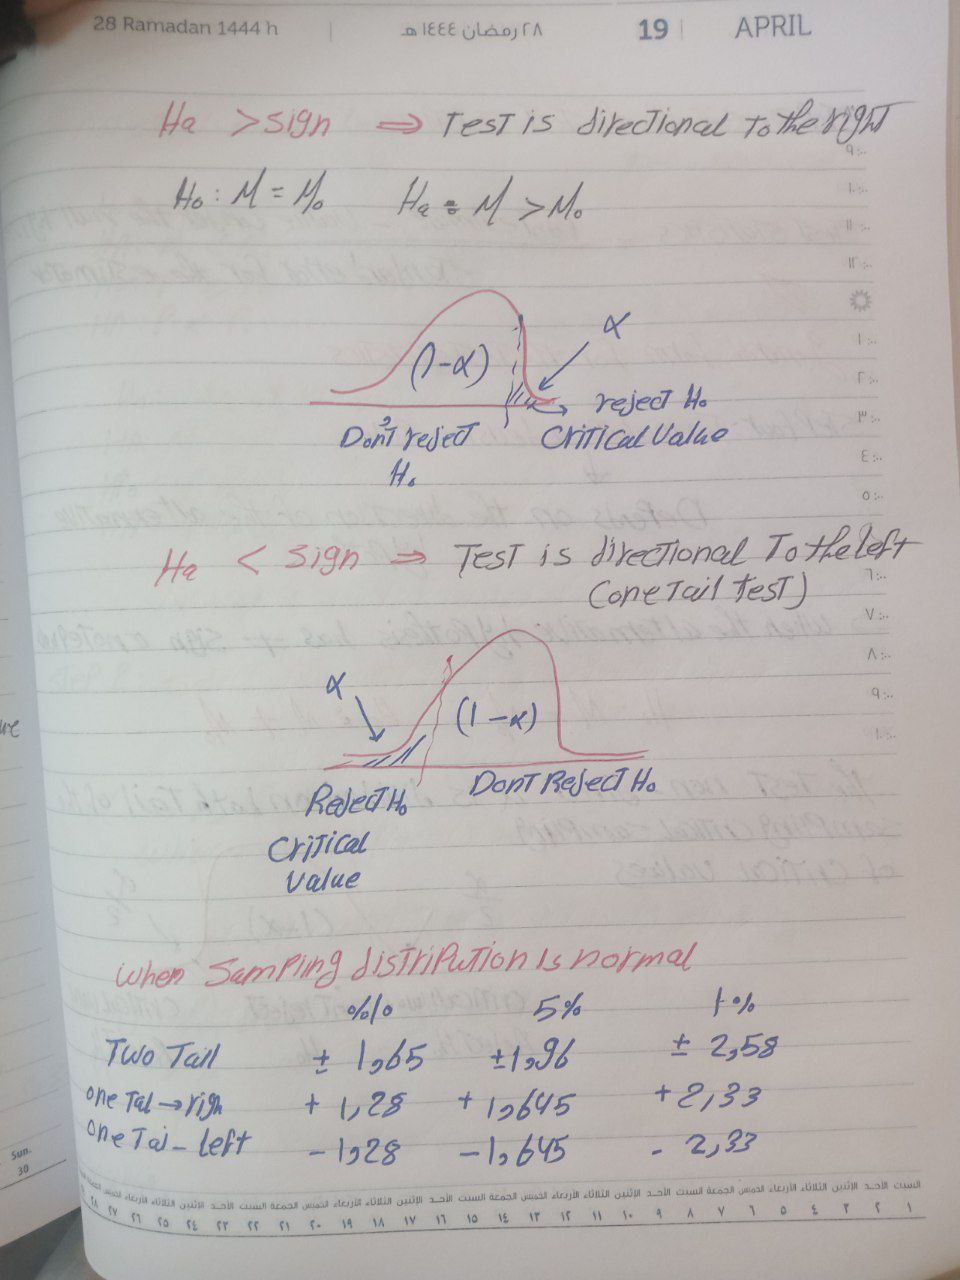 28 Ramadan 1444 h | ٢٨ رمضان ١٤٤٤ هـ 19 | APRIL
Ha > sign ⇒ Test is directional to the right
H₀ : M = M₀ Ha : M > M₀
α
(1-α)
reject H₀
Don't reject Critical Value
H₀
Ha < sign ⇒ Test is directional To the left
(one Tail test)
α
(1-α)
Reject H₀ Dont Reject H₀
Critical
Value
when Sampling distripution is normal
%10 5% 1%
Two Tail ± 1,65 ±1,96 ± 2,58
one Tal → righ + 1,28 + 1,645 + 2,33
one Tai - left - 1,28 - 1,645 - 2,33
٩
١٠
١١
١٢
١
٢
٣
٤
٥
٦
٧
٨
٩
١٠
Sun.
30
السبت الأحد الإثنين الثلاثاء الأربعاء الخميس الجمعة السبت الأحد الإثنين الثلاثاء الأربعاء الخميس الجمعة السبت الأحد الإثنين الثلاثاء الأربعاء الخميس الجمعة السبت الأحد الإثنين الثلاثاء الأربعاء الخميس
١ ٢ ٣ ٤ ٥ ٦ ٧ ٨ ٩ ١٠ ١١ ١٢ ١٣ ١٤ ١٥ ١٦ ١٧ ١٨ ١٩ ٢٠ ٢١ ٢٢ ٢٣ ٢٤ ٢٥ ٢٦ ٢٧ ٢٨